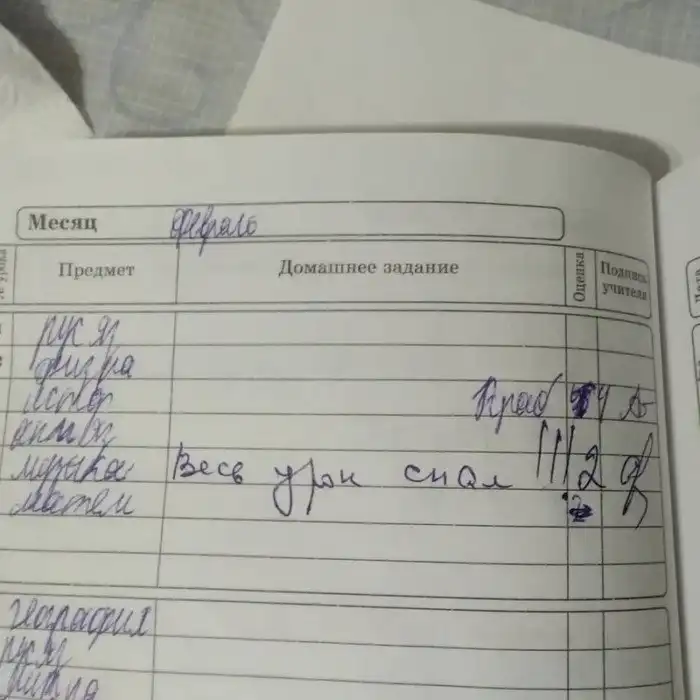 Месяц февраль
№ урока Предмет Домашнее задание Оценка Подпись учителя
рус яз
физ ра
истор Краб 4
англ яз
музыка Весь урок спал !!! 2
матем 2
география
рус яз
физ ра